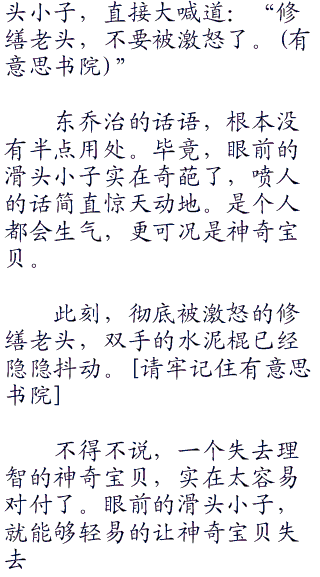 头小子，直接大喊道：“修
缮老头，不要被激怒了。(有
意思书院)”
东乔治的话语，根本没
有半点用处。毕竟，眼前的
滑头小子实在奇葩了，喷人
的话简直惊天动地。是个人
都会生气，更可况是神奇宝
贝。
此刻，彻底被激怒的修
缮老头，双手的水泥棍已经
隐隐抖动。[请牢记住有意思
书院]
不得不说，一个失去理
智的神奇宝贝，实在太容易
对付了。眼前的滑头小子，
就能够轻易的让神奇宝贝失
去